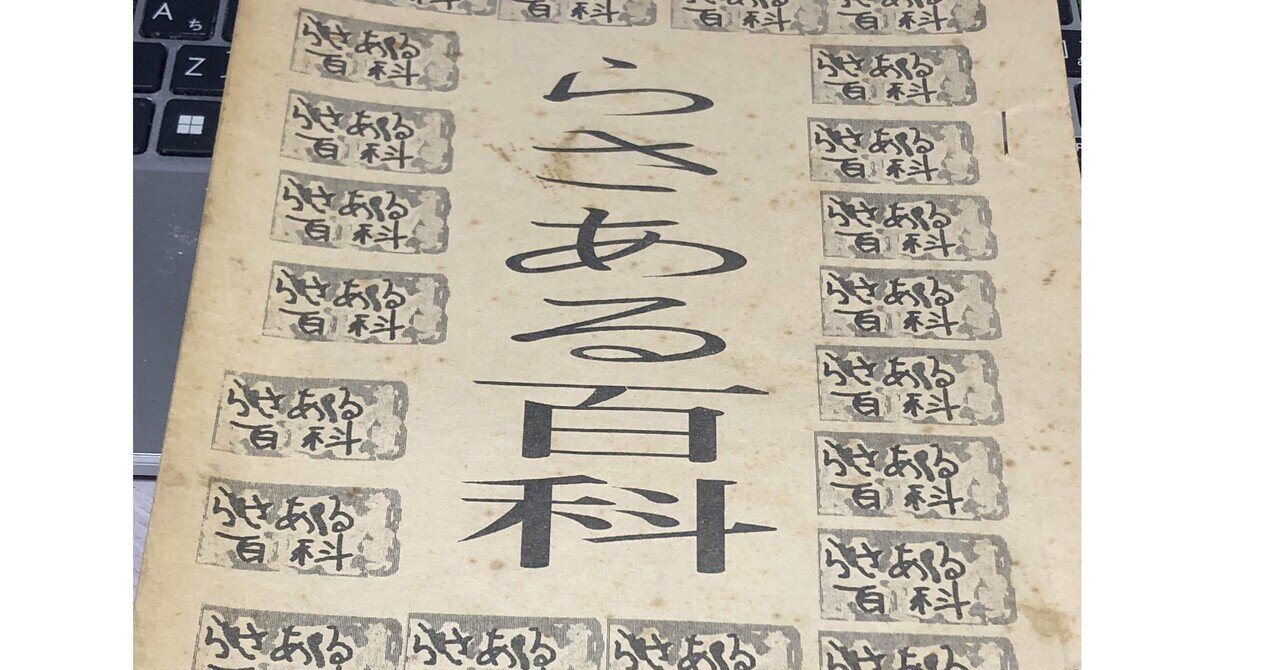 A
ち
Z
百科
百科
百科
百科
らさある
百科
らさある
百科
らさある
百科
らさある
百科
らさある
百科
らさある
百科
らさある百科
らさある
百科
らさある
百科
らさある
百科
らさある
百科
らさある
百科
らさある
百科
らさある
百科
らさある
らさある
らさある
らさある